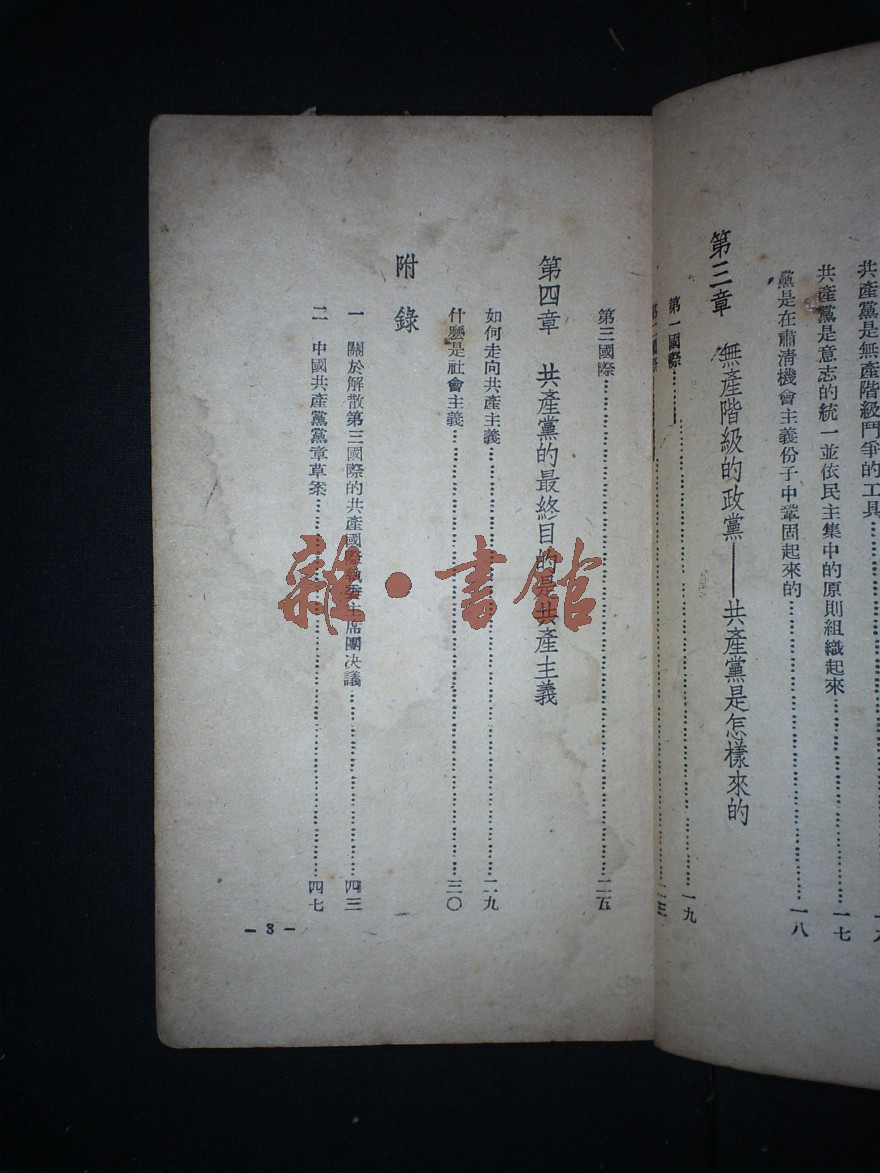 共產黨是無產階級鬥爭的工具……………………一六
共產黨是意志的統一並依民主集中的原則組織起來……………………一七
黨是在肅清機會主義份子中鞏固起來的……………………一八
第三章　無產階級的政黨——共產黨是怎樣來的
第一國際……………………一九
第二國際……………………二三
第三國際……………………二五
第四章　共產黨的最終目的是共產主義
如何走向共產主義……………………二九
什麽是社會主義……………………三〇
附　錄
一　關於解散第三國際的共產國際執委主席團決議……………………四三
二　中國共產黨黨章草案……………………四七
- 3 -
雜·書館